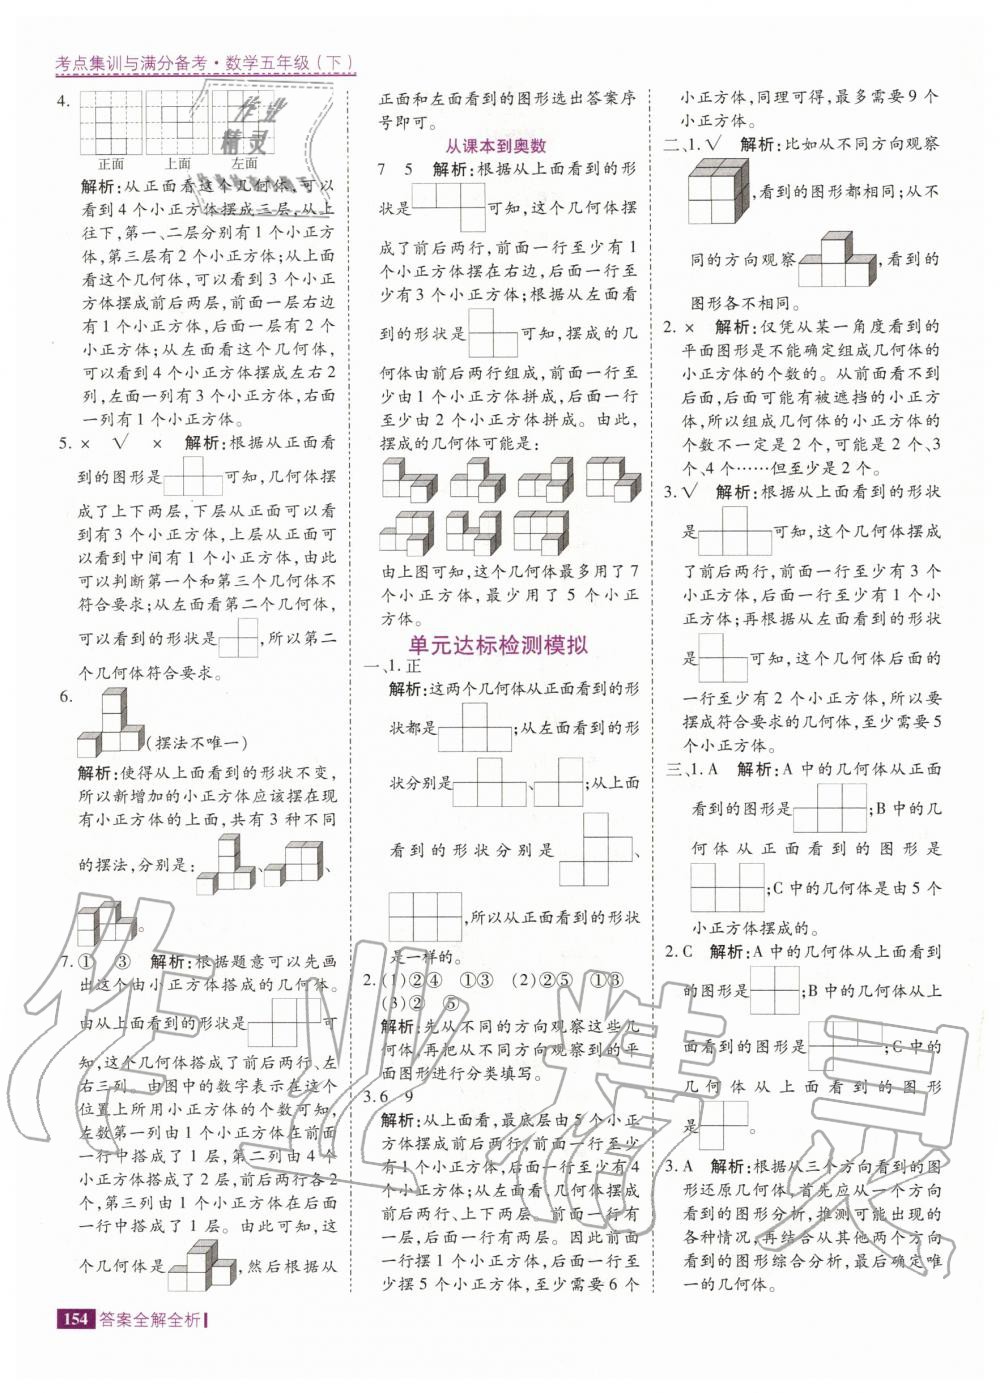 考点集训与满分备考·数学五年级(下)
4.
正面 上面 左面
解析:从正面看这个几何体,可以
看到4个小正方体摆成三层,从上
往下,第一、二层分别有1个小正方
体,第三层有2个小正方体;从上面
看这个几何体,可以看到3个小正
方体摆成前后两层,前面一层右边
有1个小正方体,后面一层有2个
小正方体;从左面看这个几何体,
可以看到4个小正方体摆成左右2
列,左面一列有3个小正方体,右面
一列有1个小正方体。
5. × √ × 解析:根据从正面看
到的图形是 可知,几何体摆
成了上下两层,下层从正面可以看
到有3个小正方体,上层从正面可
以看到中间有1个小正方体,由此
可以判断第一个和第三个几何体不
符合要求;从左面看第二个几何体,
可以看到的形状是 ,所以第二
个几何体符合要求。
6.
(摆法不唯一)
解析:使得从上面看到的形状不变,
所以新增加的小正方体应该摆在现
有小正方体的上面,共有3种不同
的摆法,分别是: 、 、
。
7. ① ③ 解析:根据题意可以先画
出这个由小正方体搭成的几何体。
由从上面看到的形状是 可
知,这个几何体搭成了前后两行、左
右三列。由图中的数字表示在这个
位置上所用小正方体的个数可知,
左数第一列由1个小正方体在前面
一行中搭成了1层,第二列由4个
小正方体搭成了2层,前后两行各2
个,第三列由1个小正方体在后面
一行中搭成了1层。由此可知,这
个几何体是 ,然后根据从
正面和左面看到的图形选出答案序
号即可。
从课本到奥数
7 5 解析:根据从上面看到的形
状是 可知,这个几何体摆
成了前后两行,前面一行至少有1
个小正方体摆在右边,后面一行至
少有3个小正方体;根据从左面看
到的形状是 可知,摆成的几
何体由前后两行组成,前面一行至
少由1个小正方体拼成,后面一行
至少由2个小正方体拼成。由此,
摆成的几何体可能是:
由上图可知,这个几何体最多用了7
个小正方体,最少用了5个小正
方体。
单元达标检测模拟
一、1.正
解析:这两个几何体从正面看到的形
状都是 ;从左面看到的形
状分别是 、 ;从上面
看到的形状分别是 、
,所以从正面看到的形状
是一样的。
2.(1)②④ ①③ (2)②⑤ ①③
(3)② ⑤
解析:先从不同的方向观察这些几
何体,再把从不同方向观察到的平
面图形进行分类填写。
3.6 9
解析:从上面看,最底层由5个小正
方体摆成前后两行,前面一行至少有
1个小正方体,后面一行至少有4
个小正方体;从左面看,几何体摆成
前后两行、上下两层。前面一行有
一层,后面一行有两层。因此前面
一行摆1个小正方体,后面一行至
少摆5个小正方体,至少需要6个
小正方体,同理可得,最多需要9个
小正方体。
二、1.√ 解析:比如从不同方向观察
,看到的图形都相同;从不
同的方向观察 ,看到的
图形各不相同。
2. × 解析:仅凭从某一角度看到的
平面图形是不能确定组成几何体的
小正方体的个数的。从前面看不到
后面,后面可能有被遮挡的小正方
体,所以组成几何体的小正方体的
个数不一定是2个,可能是2个、3
个、4个……但至少是2个。
3.√ 解析:根据从上面看到的形状
是 可知,这个几何体摆成
了前后两行,前面一行至少有3个
小正方体,后面一行至少有1个小
正方体;再根据从左面看到的形状
是 可知,这个几何体后面的
一行至少有2个小正方体,所以要
摆成符合要求的几何体,至少需要5
个小正方体。
三、1.A 解析:A中的几何体从正面
看到的图形是 ;B中的几
何体从正面看到的图形是
;C中的几何体是由5个
小正方体摆成的。
2.C 解析:A中的几何体从上面看到
的图形是 ;B中的几何体从上
面看到的图形是 ;C中的
几何体从上面看到的图形
是 。
3.A 解析:根据从三个方向看到的图
形还原几何体,首先应从一个方向
看到的图形分析,推测可能出现的
各种情况,再结合从其他两个方向
看到的图形综合分析,最后确定唯
一的几何体。
154 答案全解全析
作业
精灵
作业精灵